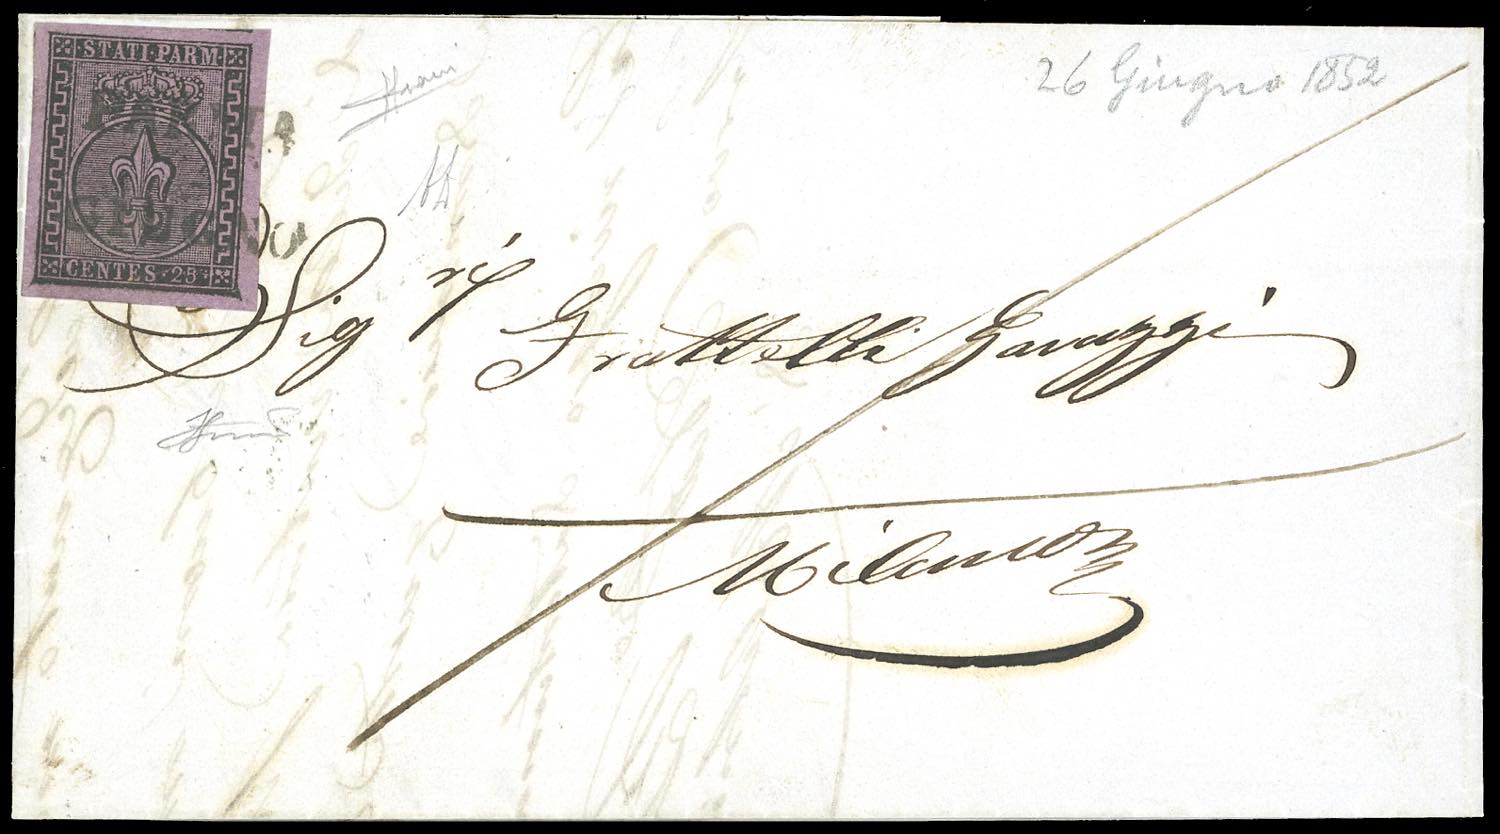 STATI PARM.
CENTES. 25
26 Giugno 1852
Sig ri Fratelli Gavazzi
Milano